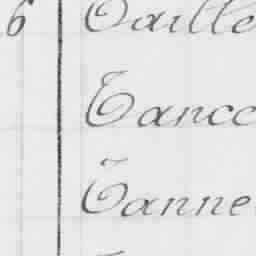 6 Taille
Tance
Tanne